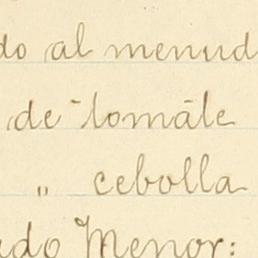 do al menud
de tomate
" cebolla
do Menor: